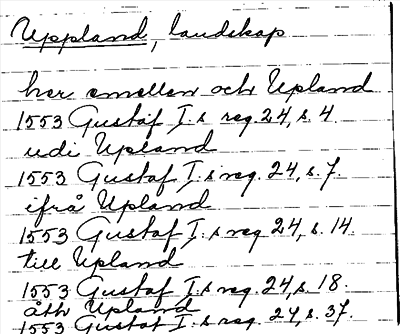 Uppland, landskap
her emellen och Upland
1553 Gustaf I:s reg. 24, s. 4.
udi Upland
1553 Gustaf I:s reg. 24, s. 7.
ifrå Upland
1553 Gustaf I:s reg. 24, s. 14.
till Upland
1553 Gustaf I:s reg. 24, s. 18.
åth Upland
1553 Gustaf I:s reg. 24, s. 37.